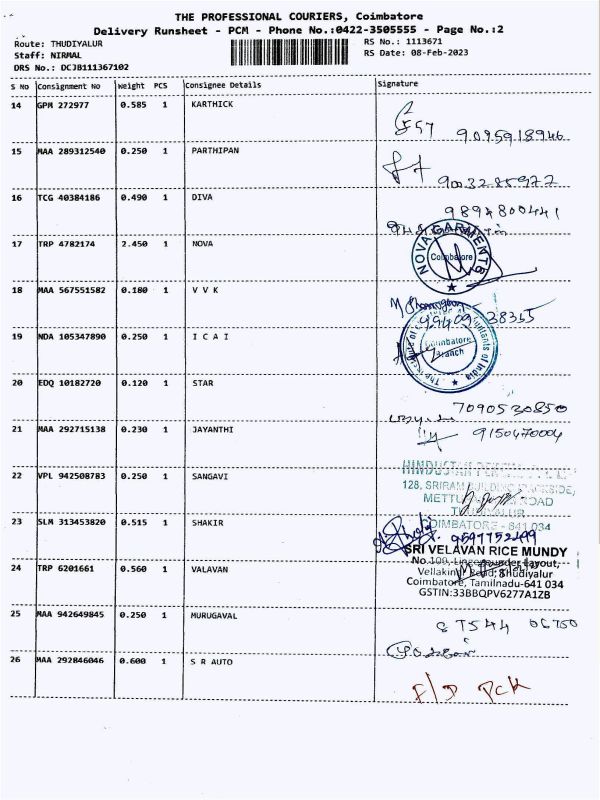 THE PROFESSIONAL COURIERS, Coimbatore
Delivery Runsheet - PCM - Phone No.:0422-3505555 - Page No.:2
Route: THUDIYALUR
Staff: NIRMAL
DRS No.: DCJB111367102
RS No.: 1113671
RS Date: 08-Feb-2023
S No Consignment No Weight PCS Consignee Details Signature
14 GPM 272977 0.585 1 KARTHICK
9095918946
15 MAA 289312540 0.250 1 PARTHIPAN
9003285977
16 TCG 40384186 0.490 1 DIVA
9894800441
17 TRP 4782174 2.450 1 NOVA
NOVA GARMENTS
Coimbatore
18 MAA 567551582 0.180 1 V V K
99409 38355
19 NDA 105347890 0.250 1 I C A I
Coimbatore
Branch
20 EDQ 10182720 0.120 1 STAR
7090530850
21 MAA 292715138 0.230 1 JAYANTHI
9150470004
22 VPL 942508783 0.250 1 SANGAVI
128, SRIRAM BUILDING
ROAD
COIMBATORE - 641 034
23 SLM 313453820 0.515 1 SHAKIR
9597752499
SRI VELAVAN RICE MUNDY
24 TRP 6201661 0.560 1 VALAVAN
Coimbatore, Tamilnadu-641 034
GSTIN:33BBQPV6277A1ZB
25 MAA 942649845 0.250 1 MURUGAVAL
87544 06750
26 MAA 292846046 0.600 1 S R AUTO
F/D PCK